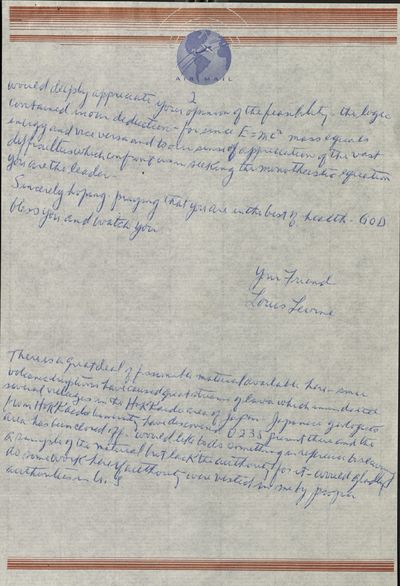 AIR MAIL
2
would deeply appreciate your opinion of the feasibility - the logic
contained in our deduction - for since E = mc² mass equals
energy and vice versa and to our sense of appreciation of the vast
difficulties which confront us in seeking the monotheistic equation
you are the leader.
Sincerely hoping, praying that you are in the best of health - GOD
bless you and watch you
Your Friend
Louis Levine
There is a great deal of fissionable material available here - since
volcanic eruptions have caused great streams of lava which inundated
several villages in the Hokkaido area of Japan. Japanese geologists
from Hokkaido University have discovered U 235 present there and the
area has been closed off - would like to do something in reference to
a sample of the material but lack the authority for it - would gladly
do some work here if authority were vested in me by proper
authorities in U.S.